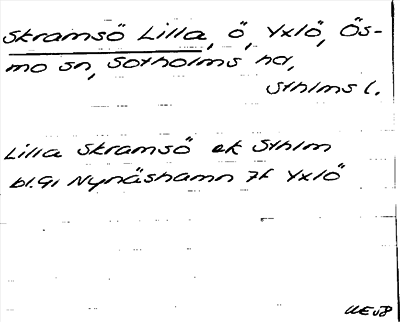 Skramsö Lilla, ö, Yxlö, Ös-
mo sn, Sotholms hd,
Sthlms l.
Lilla Skramsö ek Sthlm
bl.91 Nynäshamn 7f Yxlö